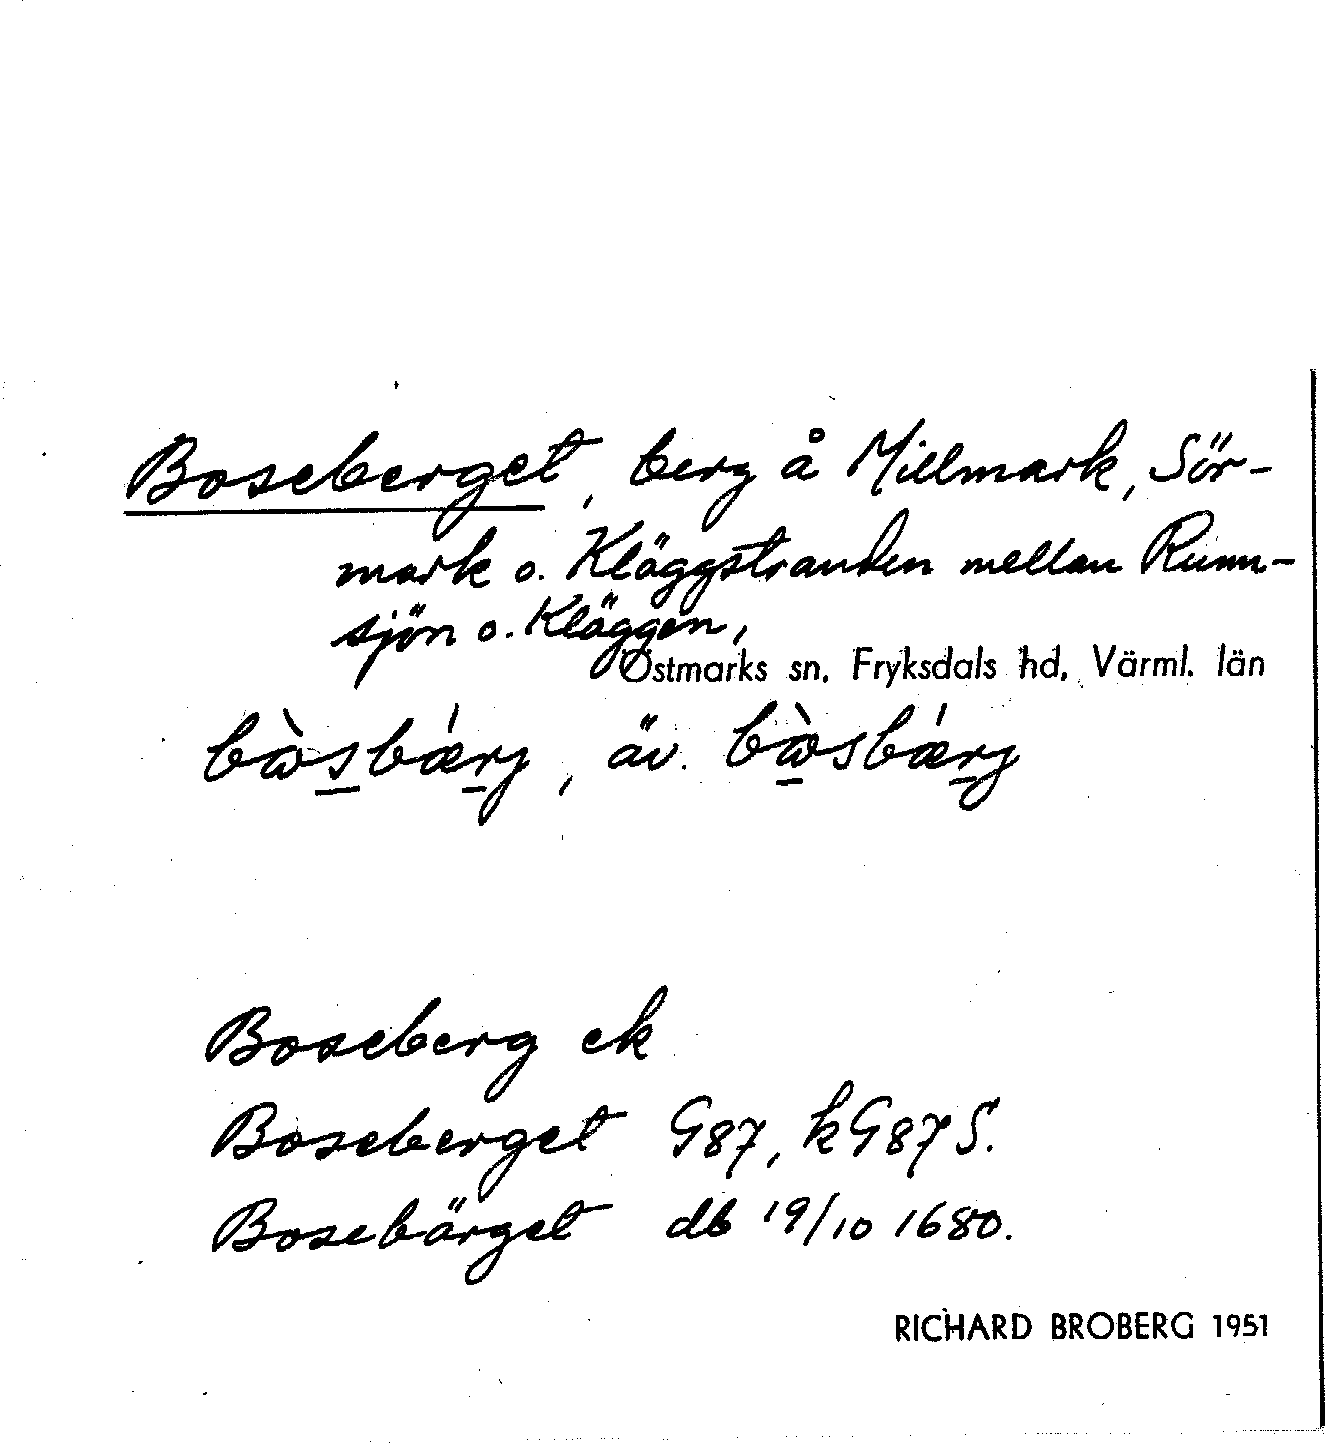 Boseberget, berg å Millmark, Sör-
mark o. Kläggstranden mellan Runn-
sjön o. Kläggen,
Östmarks sn, Fryksdals hd, Värml. län
bὼsbǽrj, äv. bὼsbǽrj
Boseberg ek
Boseberget G87, kG87S.
Bosebärget db 19/10 1680.
RICHARD BROBERG 1951